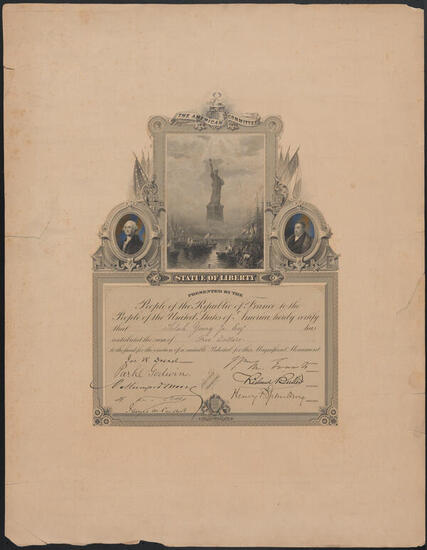 THE AMERICAN COMMITTEE
STATUE OF LIBERTY
PRESENTED BY THE
People of the Republic of France to the
People of the United States of America hereby certify
that Young Jr. Esq has
contributed the sum of Five Dollars
to the fund for the erection of a suitable Pedestal for this Magnificent Monument
Jos. W. Drexel
Parke Godwin
Wm. M. Evarts
Richard Butler
Henry F. Spaulding